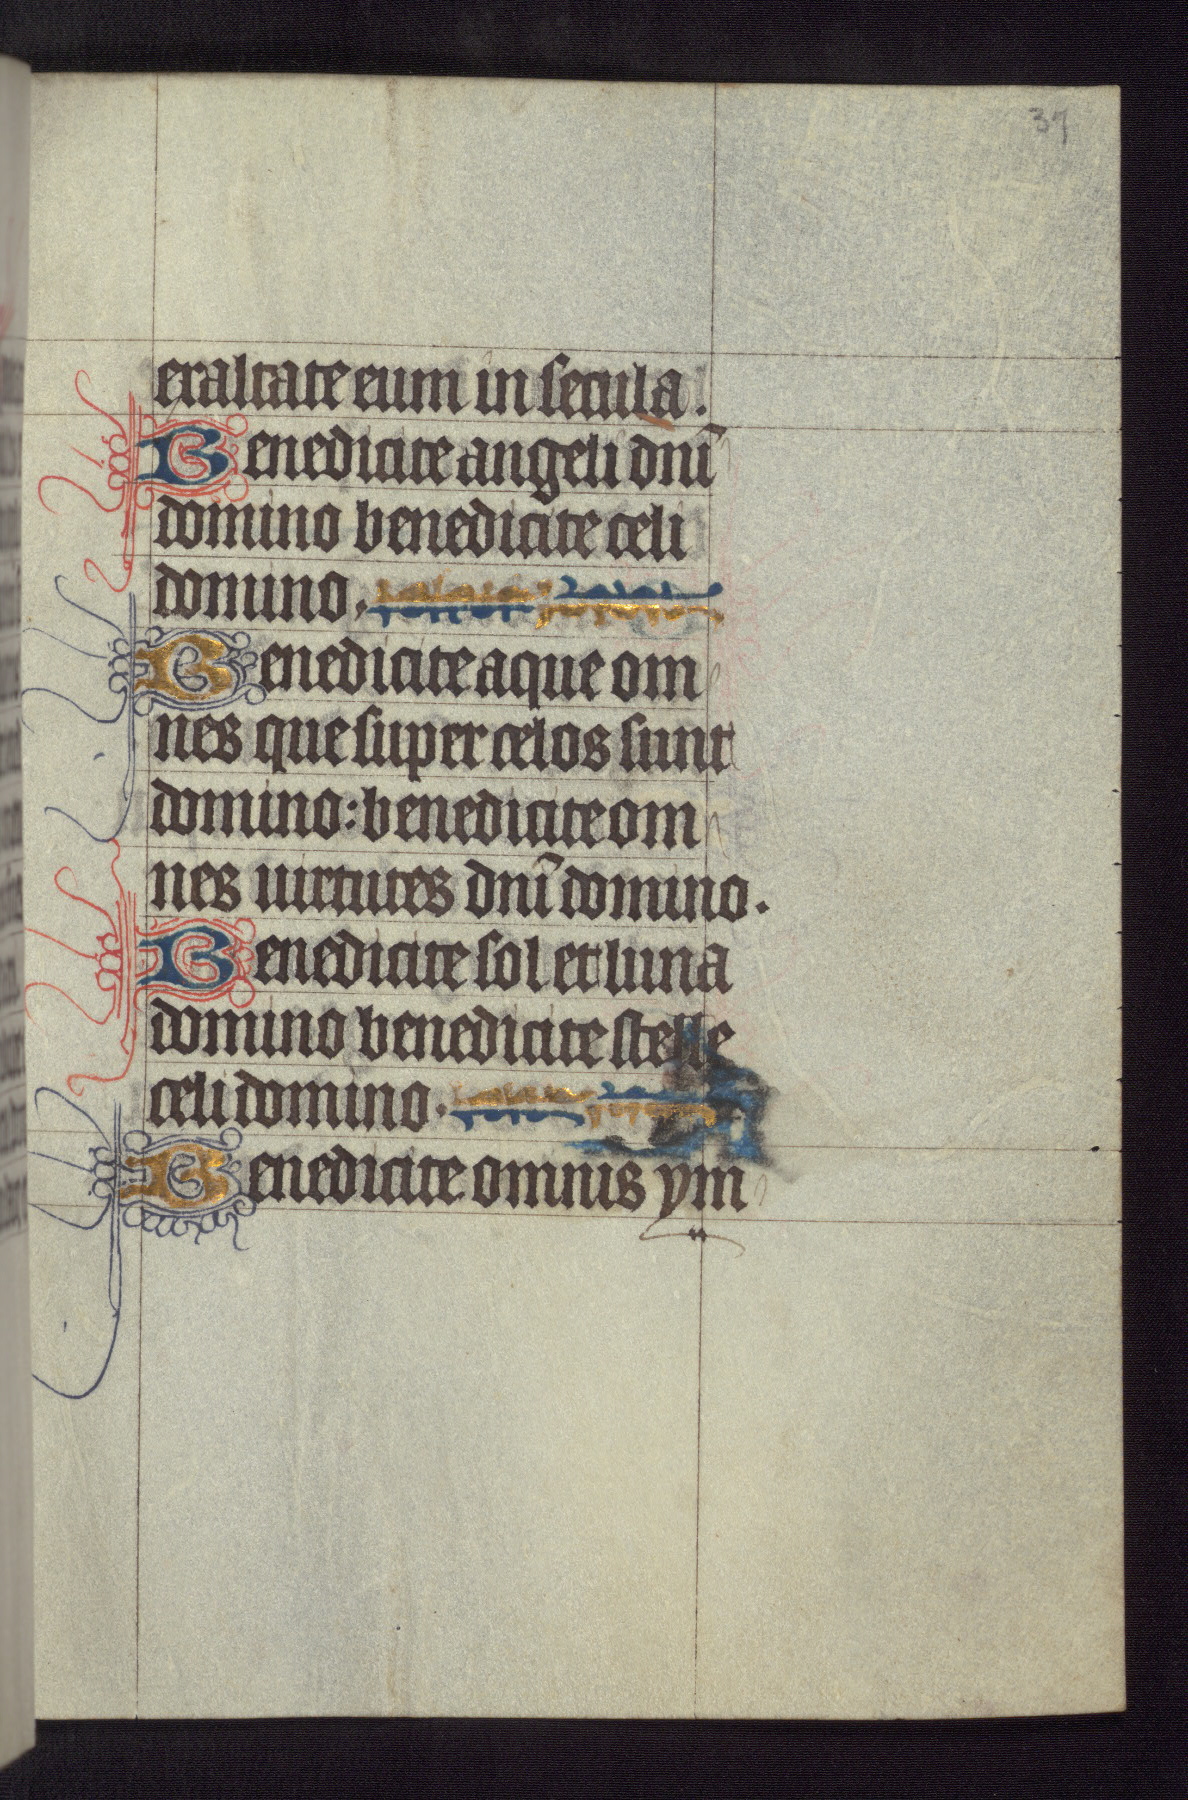 37
exaltate eum in secula.
Benedicite angeli dñi
domino benedicite celi
domino.
Benedicite aque om
nes que super celos sunt
domino: benedicite om
nes uirtutes dñi domino.
Benedicite sol et luna
domino benedicite stelle
celi domino.
Benedicite omnis ym